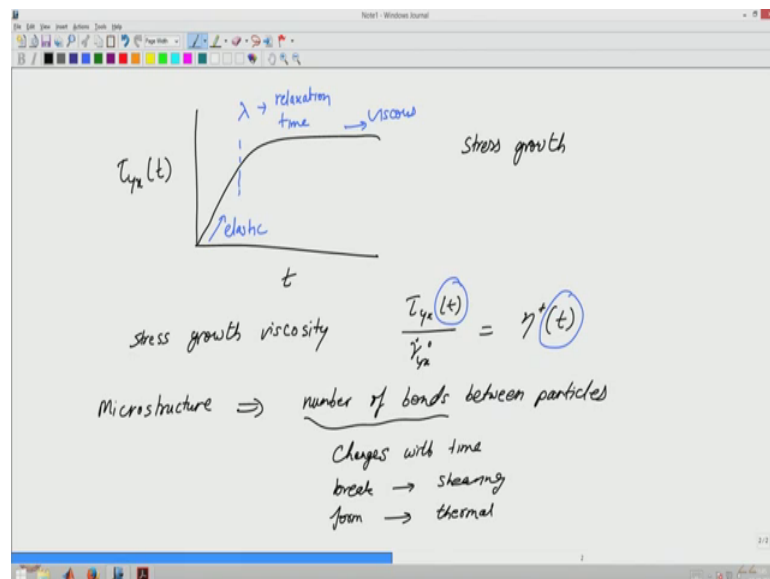 Note1 - Windows Journal
File Edit View Insert Actions Tools Help
Page Width
B I
λ → relaxation
time
→ viscous
τyx(t)
elastic
t
stress growth
stress growth viscosity
τyx(t) / γ̇°yx = η⁺(t)
Microstructure ⇒ number of bonds between particles
Changes with time
break → shearing
form → thermal
2 / 2
2